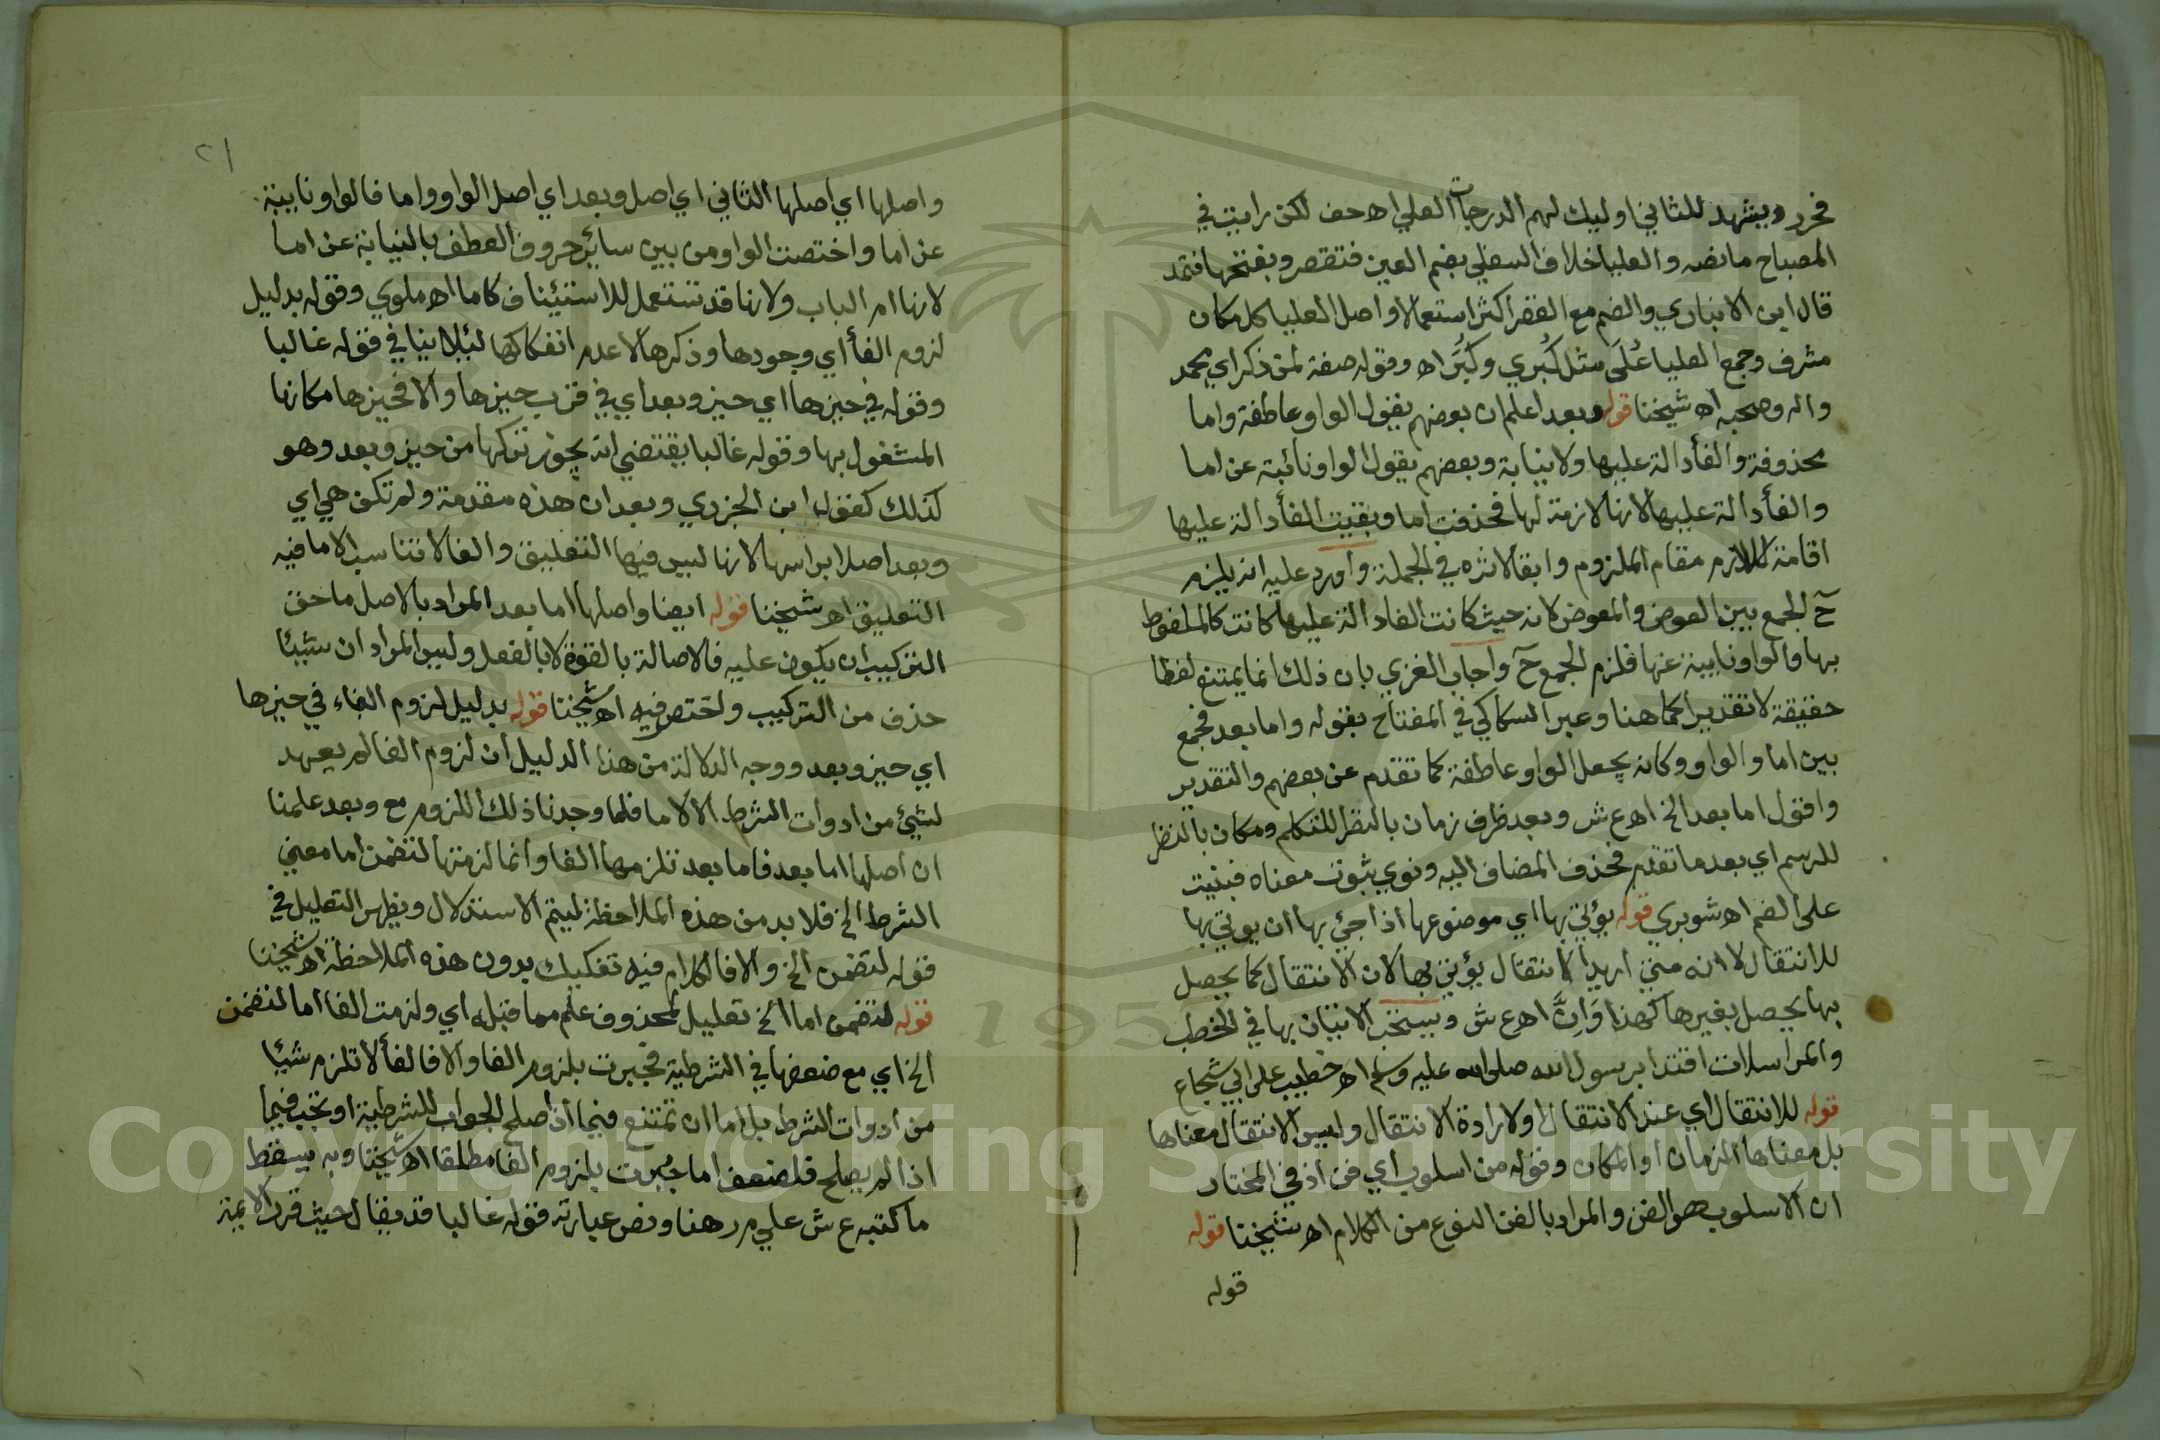 فحرر ويشهد للثاني اوليك لهم الدرجات العلي اه حف لكن رايت في
المصباح ما نصه والعليا خلاف السفلي بضم العين فتقصر وبفتحها فتمد
قال ابن الانباري والضم مع القصر اكثر استعمالا واصل العليا كل مكان
مشرف وجمع العليا عُلَى مثل كُبري وكُبَر اه وقوله صفة لمن ذكر اي محمد
واله وصحبه اه شيخنا قوله وبعد اعلم ان بعضهم يقول الواو عاطفة واما
محذوفة والفأ دالة عليها ولا نيابة وبعضهم يقول الواو نائبة عن اما
والفأ دالة عليها لانها لازمة لها فحذفت اما وبقيت الفأ دالة عليها
اقامة للازم مقام الملزوم وابقا لاثره في الجملة واورد عليه انه يلزم
ح الجمع بين العوض والمعوض لانه حيث كانت الفا دالة عليها كانت كالملفوظ
بها والواو نايبة عنها فلزم الجمع ح واجاب الغزي بان ذلك انما يمتنع لفظا
حقيقة لا تقديرا كما هنا وعبر السكاكي في المفتاح بقوله واما بعد فجمع
بين اما والواو وكانه يجعل الواو عاطفة كما تقدم عن بعضهم والتقدير
واقول اما بعد الخ اه ع ش وبعد ظرف زمان بالنظر للتكلم ومكان بالنظر
للرسم اي بعد ما تقدم فحذف المضاف اليه ونوي ثبوت معناه فبنيت
علي الضم اه شوبري قوله يؤتي بها اي موضوعها اذا جئ بها ان يوتي بها
للانتقال لا انه متي اريد الانتقال يؤتي بها لان الانتقال كما يحصل
بها يحصل بغيرها كهذا وَاِنَّ اه ع ش ويستحب الاتيان بها في الخطب
والمراسلات اقتدا برسول الله صلى الله عليه وسلم اه خطيب علي ابي شجاع
قوله للانتقال اي عند الانتقال او لارادة الانتقال وليس الانتقال معناها
بل معناها الزمان او المكان وقوله من اسلوب اي فن اذ في المختار
ان الاسلوب هو الفن والمراد بالفن النوع من الكلام اه شيخنا قوله
قوله
٢١
واصلها اي اصلها الثاني اي اصل وبعد اي اصل الواو واما فالواو نايبة
عن اما واختصت الواو من بين سائر حروف العطف بالنيابة عن اما
لانها ام الباب ولانها قد تستعمل للاستئناف كاما اه ملوي وقوله بدليل
لزوم الفأ اي وجودها وذكرها لا عدم انفكاكها لئلا ينافي قوله غالبا
وقوله في حيزها اي حيز وبعد اي في قرب حيزها والا فحيزها مكانها
المشغول بها وقوله غالبا يقتضي انه يجوز تركها من حيز وبعد وهو
كذلك كقول ابن الجزري وبعد ان هذه مقدمة ولم تكن هي اي
وبعد اصلا براسها لانها ليس فيها التعليق والفا لا تناسب الا ما فيه
التعليق اه شيخنا قوله ايضا واصلها اما بعد المراد بالاصل ما حق
التركيب ان يكون عليه فالاصالة بالقوة لا بالفعل وليس المراد ان شيئا
حذف من التركيب واختصر فيه اه شيخنا قوله بدليل لزوم الفاء في حيزها
اي حيز وبعد ووجه الدلالة من هذا الدليل ان لزوم الفا لم يعهد
لشيئ من ادوات الشرط الا لاما فلما وجدنا ذلك اللزوم مع وبعد علمنا
ان اصلها اما بعد فاما بعد تلزمها الفا وانما لزمتها لتضمن اما معني
الشرط الخ فلا بد من هذه الملاحظة ليتم الاستدلال ويظهر التعليل في
قوله لتضمن الخ والا فالكلام فيه تفكيك بدون هذه الملاحظة اه شيخنا
قوله لتضمن اما الخ تعليل لمحذوف علم مما قبله اي ولزمت الفا اما لتضمن
الخ اي مع ضعفها في الشرطية فجبرت بلزوم الفا والا فالفأ لا تلزم شيئا
من ادوات الشرط بل اما ان تمتنع فيما اذا صلح الجواب للشرطية او تجب فيما
اذا لم يصلح فلضعف اما جُبرت بلزوم الفا مطلقا اه شيخنا وبه يسقط
ما كتبه ع ش علي م ر هنا ونص عبارته قوله غالبا قد يقال حيث قرر الائمة